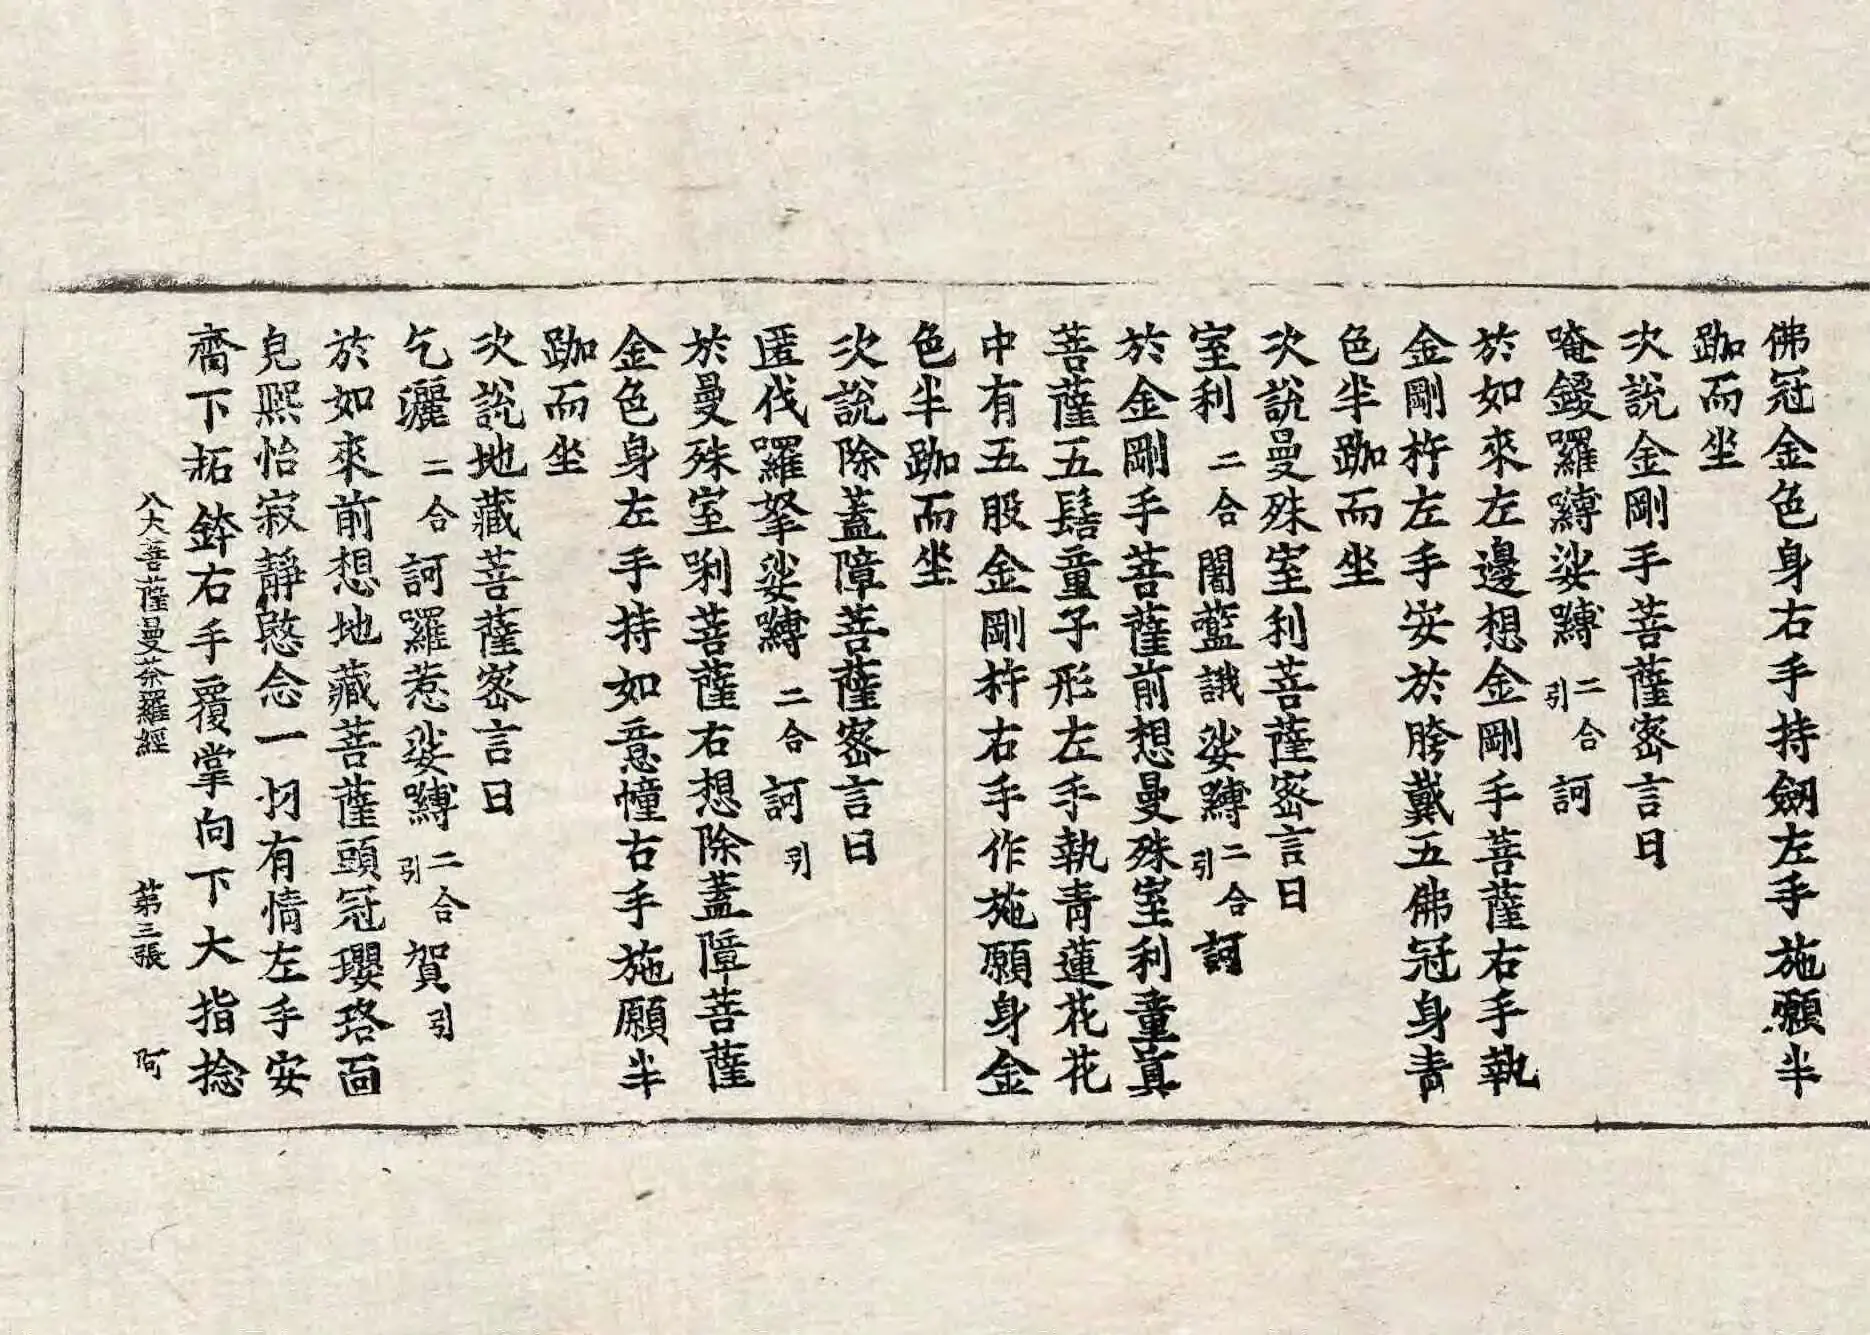 佛冠金色身右手持劒左手施願半
跏而坐
次說金剛手菩薩密言曰
唵鑁羅嚩娑嚩二合引訶
於如來左邊想金剛手菩薩右手執
金剛杵左手安於胯戴五佛冠身青
色半跏而坐
次說曼殊室利菩薩密言曰
室利二合闇藍誐娑嚩二合引訶
於金剛手菩薩前想曼殊室利童眞
菩薩五髻童子形左手執青蓮花花
中有五股金剛杵右手作施願身金
色半跏而坐
次說除蓋障菩薩密言曰
匿伐羅拏娑嚩二合訶引
於曼殊室唎菩薩右想除蓋障菩薩
金色身左手持如意幢右手施願半
跏而坐
次說地藏菩薩密言曰
乞灑二合訶羅惹娑嚩二合引賀引
於如來前想地藏菩薩頭冠瓔珞面
皃熈怡寂靜愍念一切有情左手安
齎下拓鉢右手覆掌向下大指捻
八大菩薩曼茶羅經 第三張 阿